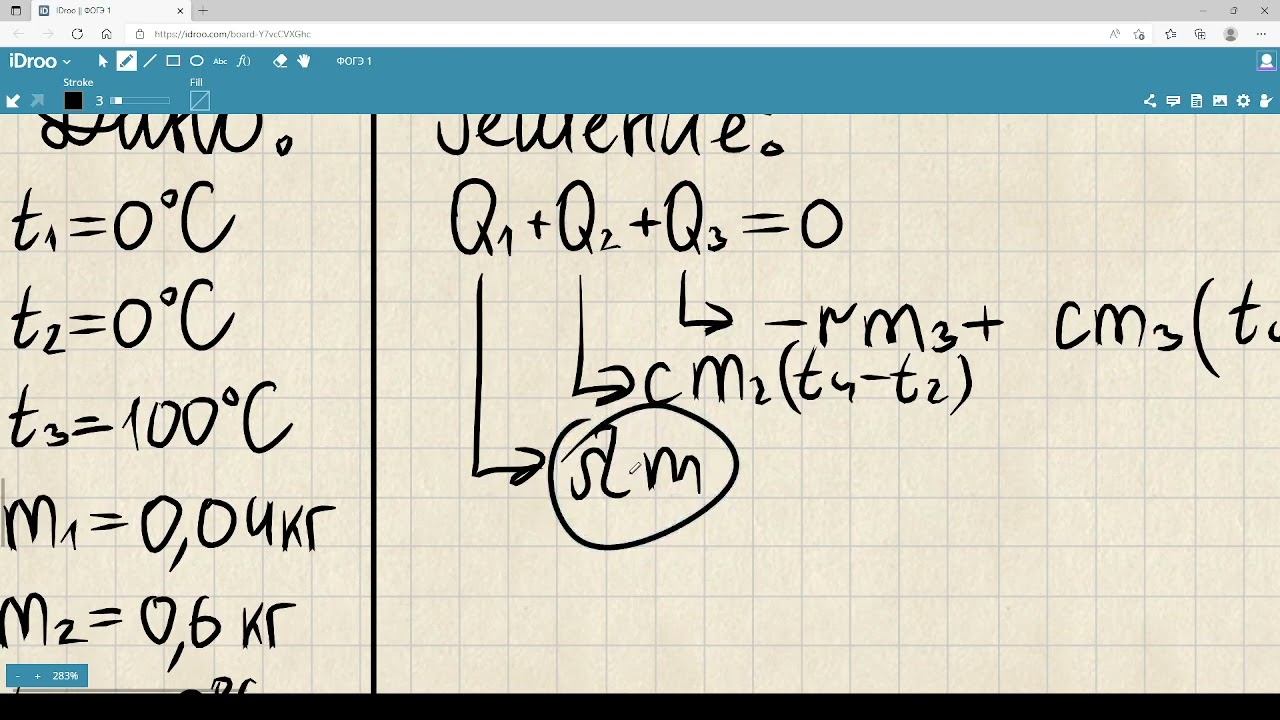 IDroo || ФОГЭ 1
https://idroo.com/board-Y7vcCVXGhc
iDroo
Abc
f()
ФОГЭ 1
Stroke
Fill
3
Дано:
t₁=0°C
t₂=0°C
t₃=100°C
m₁=0,04кг
m₂=0,6 кг
Решение:
Q₁+Q₂+Q₃=0
−rm₃+ cm₃(t₄
cm₂(t₄−t₂)
λ·m
- + 283%